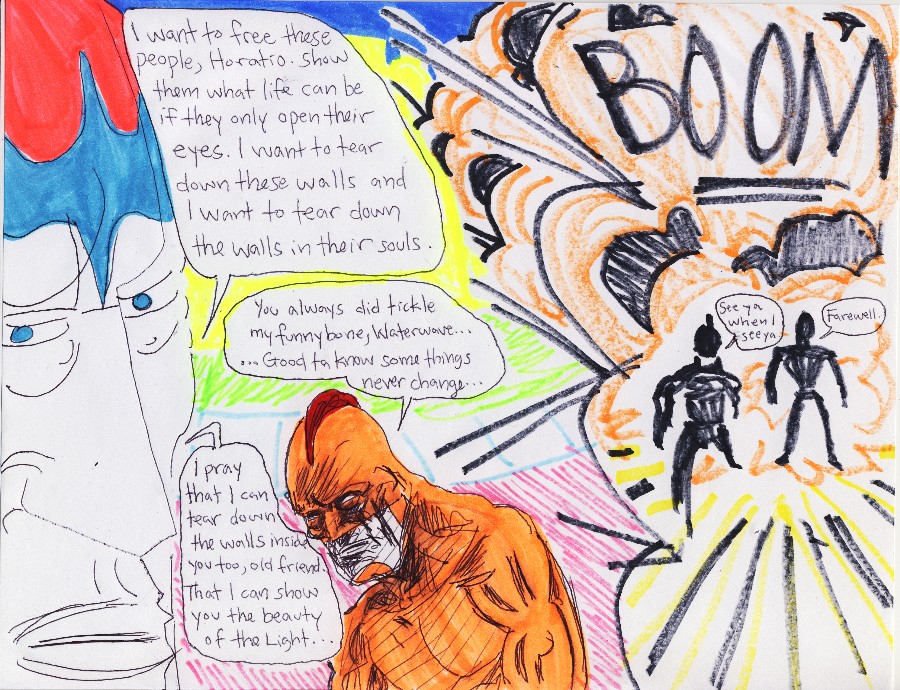 I want to free these
people, Horatio. Show
them what life can be
if they only open their
eyes. I want to tear
down these walls and
I want to tear down
the walls in their souls.
You always did tickle
my funnybone, Waterwave...
...Good ta know some things
never change...
I pray
that I can
tear down
the walls inside
you too, old friend.
That I can show
you the beauty
of the Light...
BOOM
See ya
when I
see ya
Farewell.